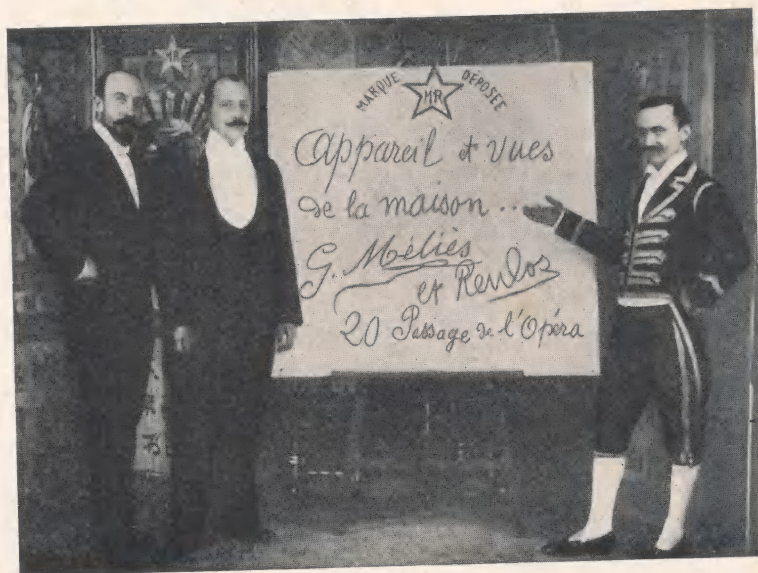 MARQUE DÉPOSÉE
MR
Appareil et vues
de la maison...
G. Méliès
et Reulos
20 Passage de l'Opéra
MR